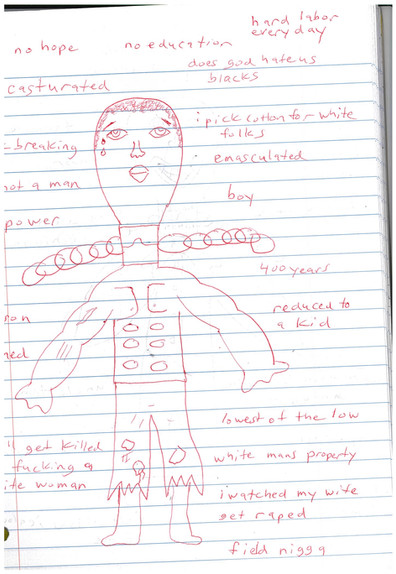 hard labor
every day
no hope
no education
does god hate us
blacks
casturated
pick cotton for white
folks
-breaking
emasculated
not a man
boy
power
400 years
reduced to
a kid
ned
lowest of the low
get killed
fucking a
ite woman
white mans property
i watched my wife
get raped
field nigga